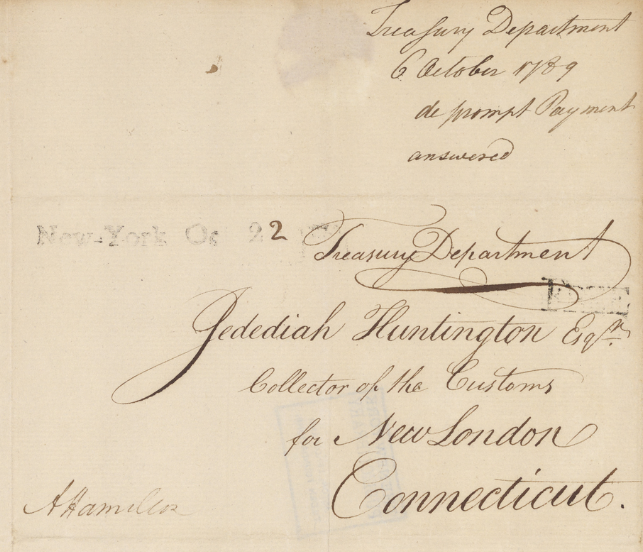 Treasury Department
6 October 1789
de prompt Payment
answered
New-York Oc 22
Treasury Department
Jedediah Huntington Esqr.
Collector of the Customs
for New London
Connecticut.
A Hamilton